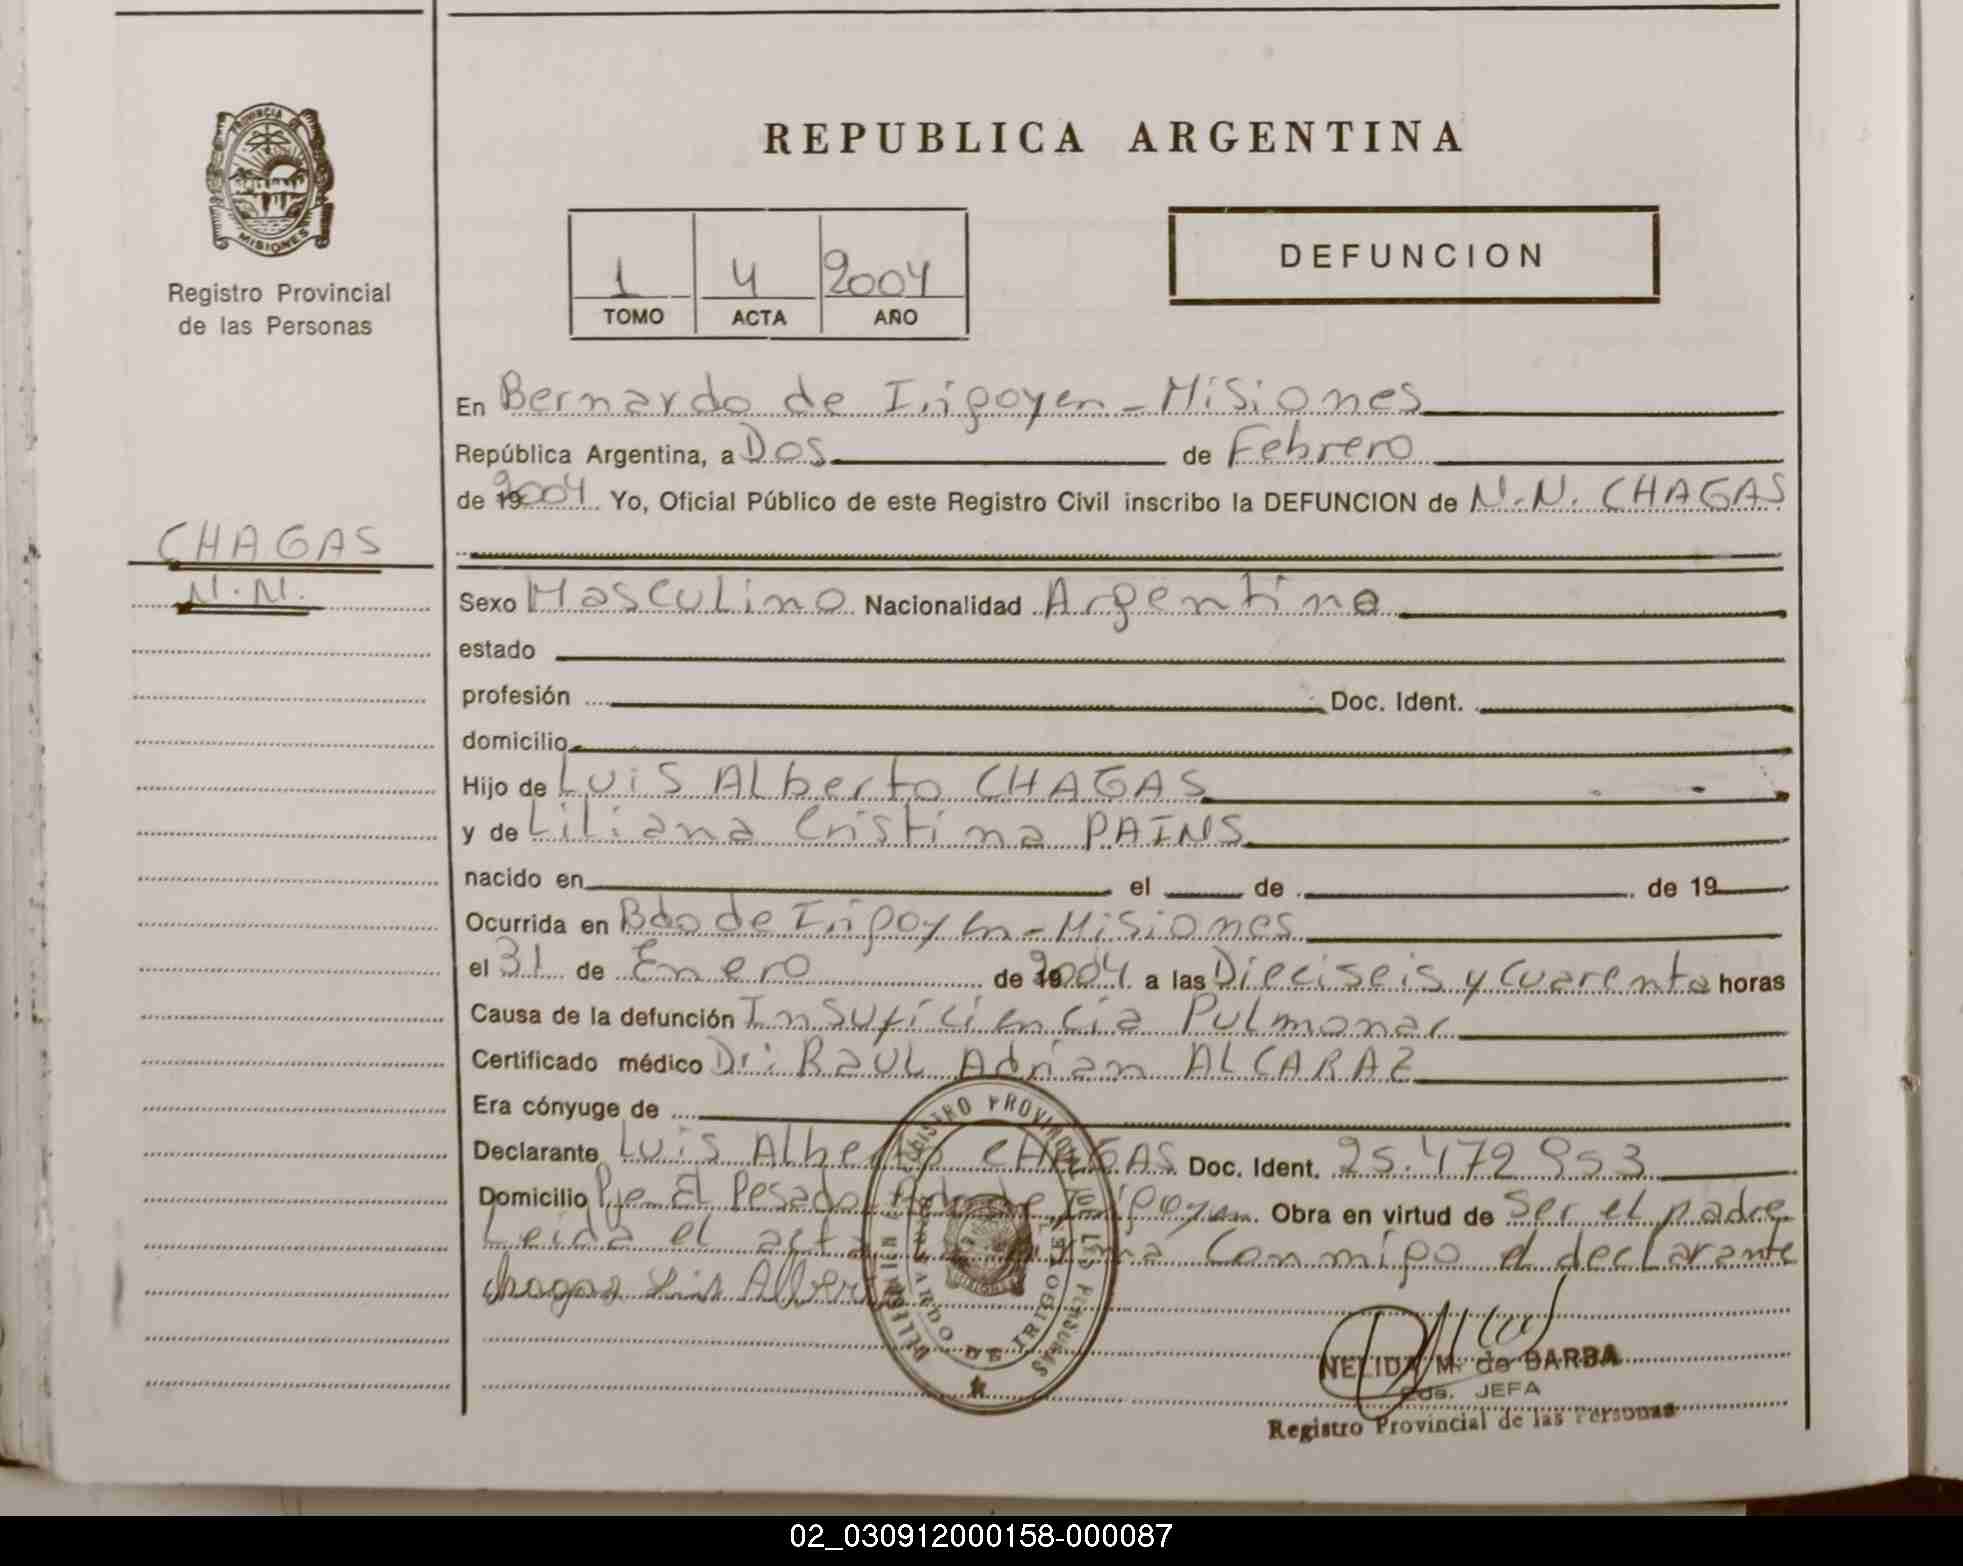 PROVINCIA DE
MISIONES
Registro Provincial
de las Personas
REPUBLICA ARGENTINA
1 4 2004
TOMO ACTA AÑO
DEFUNCION
En Bernardo de Irigoyen - Misiones
República Argentina, a Dos de Febrero
de 19 2004. Yo, Oficial Público de este Registro Civil inscribo la DEFUNCION de N.N. CHAGAS
CHAGAS
N.N.
Sexo Masculino Nacionalidad Argentina
estado
profesión Doc. Ident.
domicilio
Hijo de Luis Alberto CHAGAS
y de Liliana Cristina PAINS
nacido en el de de 19
Ocurrida en Bdo de Irigoyen - Misiones
el 31 de Enero de 19 2004 a las Dieciseis y Cuarenta horas
Causa de la defunción Insuficiencia Pulmonar
Certificado médico Dr: RAUL Adrian ALCARAZ
Era cónyuge de
Declarante Luis Alberto CHAGAS Doc. Ident. 25.472 953
Domicilio Pje El Pesado Irigoyen. Obra en virtud de ser el padre
Leida el acta firma conmigo el declarante
Chagas Luis Alberto
REGISTRO PROVINCIAL DE LAS PERSONAS
BERNARDO DE IRIGOYEN
NELIDA M. de BARBA
JEFA
Registro Provincial de las Personas
02_030912000158-000087